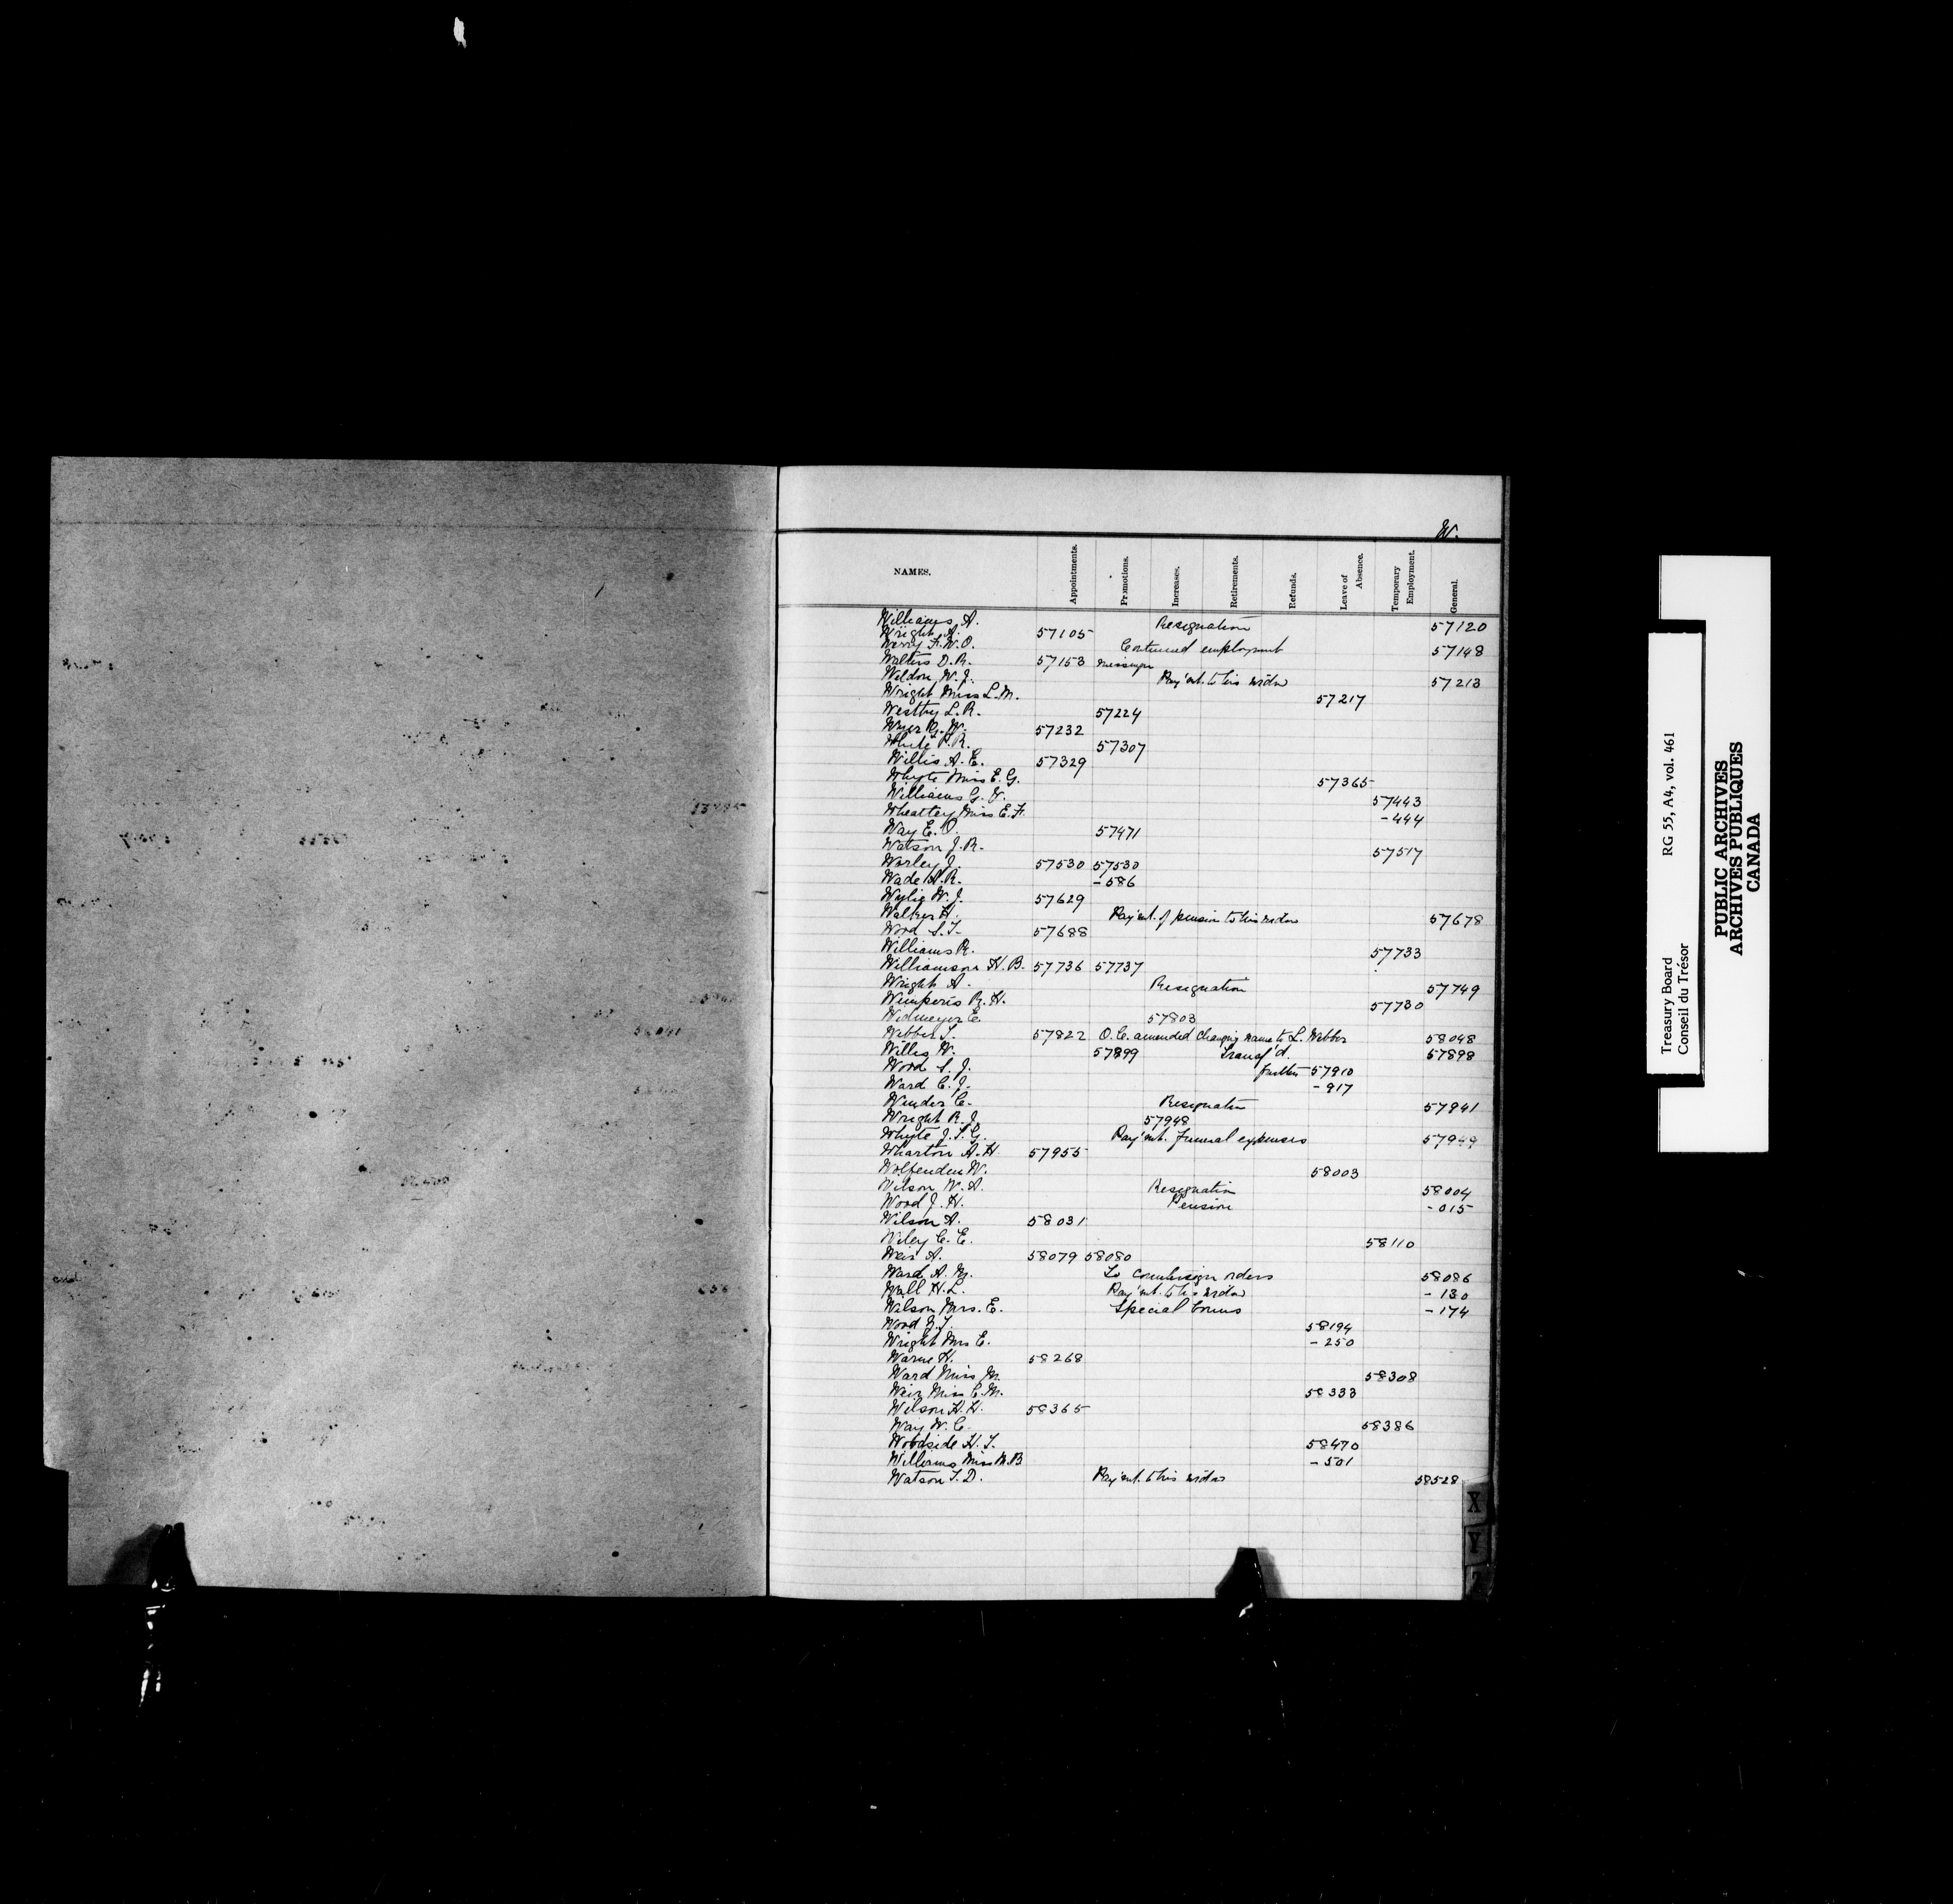 W.
NAMES. Appointments. Promotions. Increases. Retirements. Refunds. Leave of Absence. Temporary Employment. General.
Williams A. Resignation 57120
Wright A. 57105
Werry F. W. O. Continued employment 57148
Walters D. R. 57153 messenger
Weldon W. J. Pay'mt. to his widow 57213
Wright Miss L. M. 57217
L. R. 57224
G. W. 57232
White P. R. 57307
Willis A. E. 57329
Whyte Miss E. G. 57365
Williams G. V. 57443
Wheatley Miss E. F. -444
Way E. O. 57471
Watson J. R. 57517
Worley J. 57530 57530
Wade A. R. -586
Wylie W. J. 57629
Walker H. Pay'mt. of pension to his widow 57678
Wood S. T. 57688
Williams R. 57733
Williamson H. B. 57736 57737
Wright A. Resignation 57749
Wimperis R. H. 57730
Widmeyer E. 57803
Webber T. 57822 O. C. amended changing name to L. Webber 58048
Willis W. 57899 Transf'd. 57898
Wood S. J. further 57910
Ward C. J. -917
Winder C. Resignation 57941
Wright R. J. 57948
Whyte J. T. G. Pay'mt. funeral expenses 57949
Wharton A. H. 57955
Wolfenden W. 58003
Wilson W. A. Resignation 58004
Wood J. H. Pension -015
Wilson A. 58031
Wiley C. E. 58110
Weir A. 58079 58080
Ward A. M. To countersign orders 58086
Wall H. L. Pay'mt. to his widow -130
Wilson Mrs. E. Special bonus -174
Wood 58194
Wright Mrs E. -250
Warne H. 58268
Ward Miss M. 58308
Weir Miss C. M. 58333
Wilson H. H. 58365
Way W. C. 58386
Woodside H. T. 58470
Williams Miss M. B -501
Watson T. D. Pay'mt. to his widow 58528
X
Y
Treasury Board RG 55, A4, vol. 461
Conseil du Trésor
PUBLIC ARCHIVES
ARCHIVES PUBLIQUES
CANADA